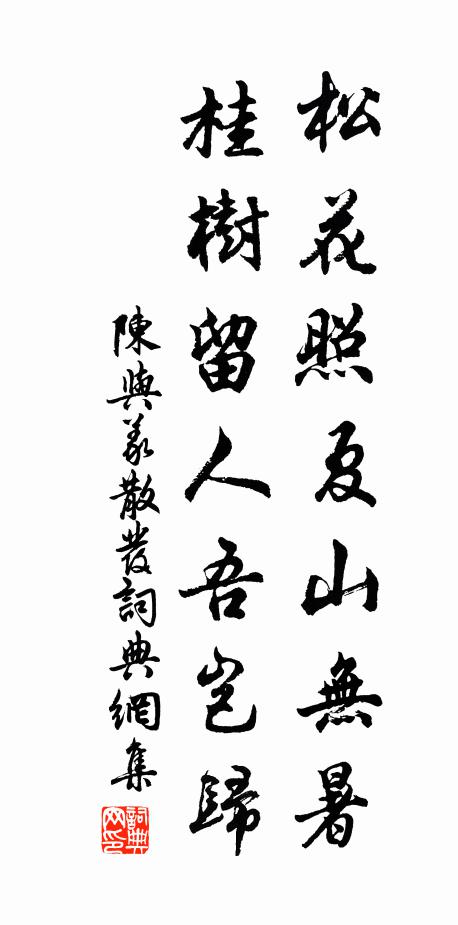 松花照夏山無暑
桂樹留人吾豈歸
陳與義散發詞典網集
詞典网印